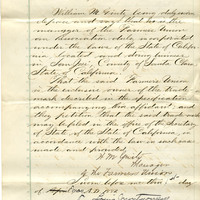 William M. Ginty being duly sworn
deposes and says that he is the
manager of the Farmers Union
an association duly incorporated
under the laws of the State of Califor-
nia, located and doing business
in San Jose, County of Santa Clara
State of California.
That the said Farmers Union
is the exclusive owner of the trade
mark described in the specification
accompanying this affidavit: and
they petition that the said trade mark
may be filed in the office of the Secretary
of State, of the State of California, in
accordance with the law in such cases
made and provided.
W M Ginty
Manager
of The Farmers Union
Sworn before me this day
of A.D. 18